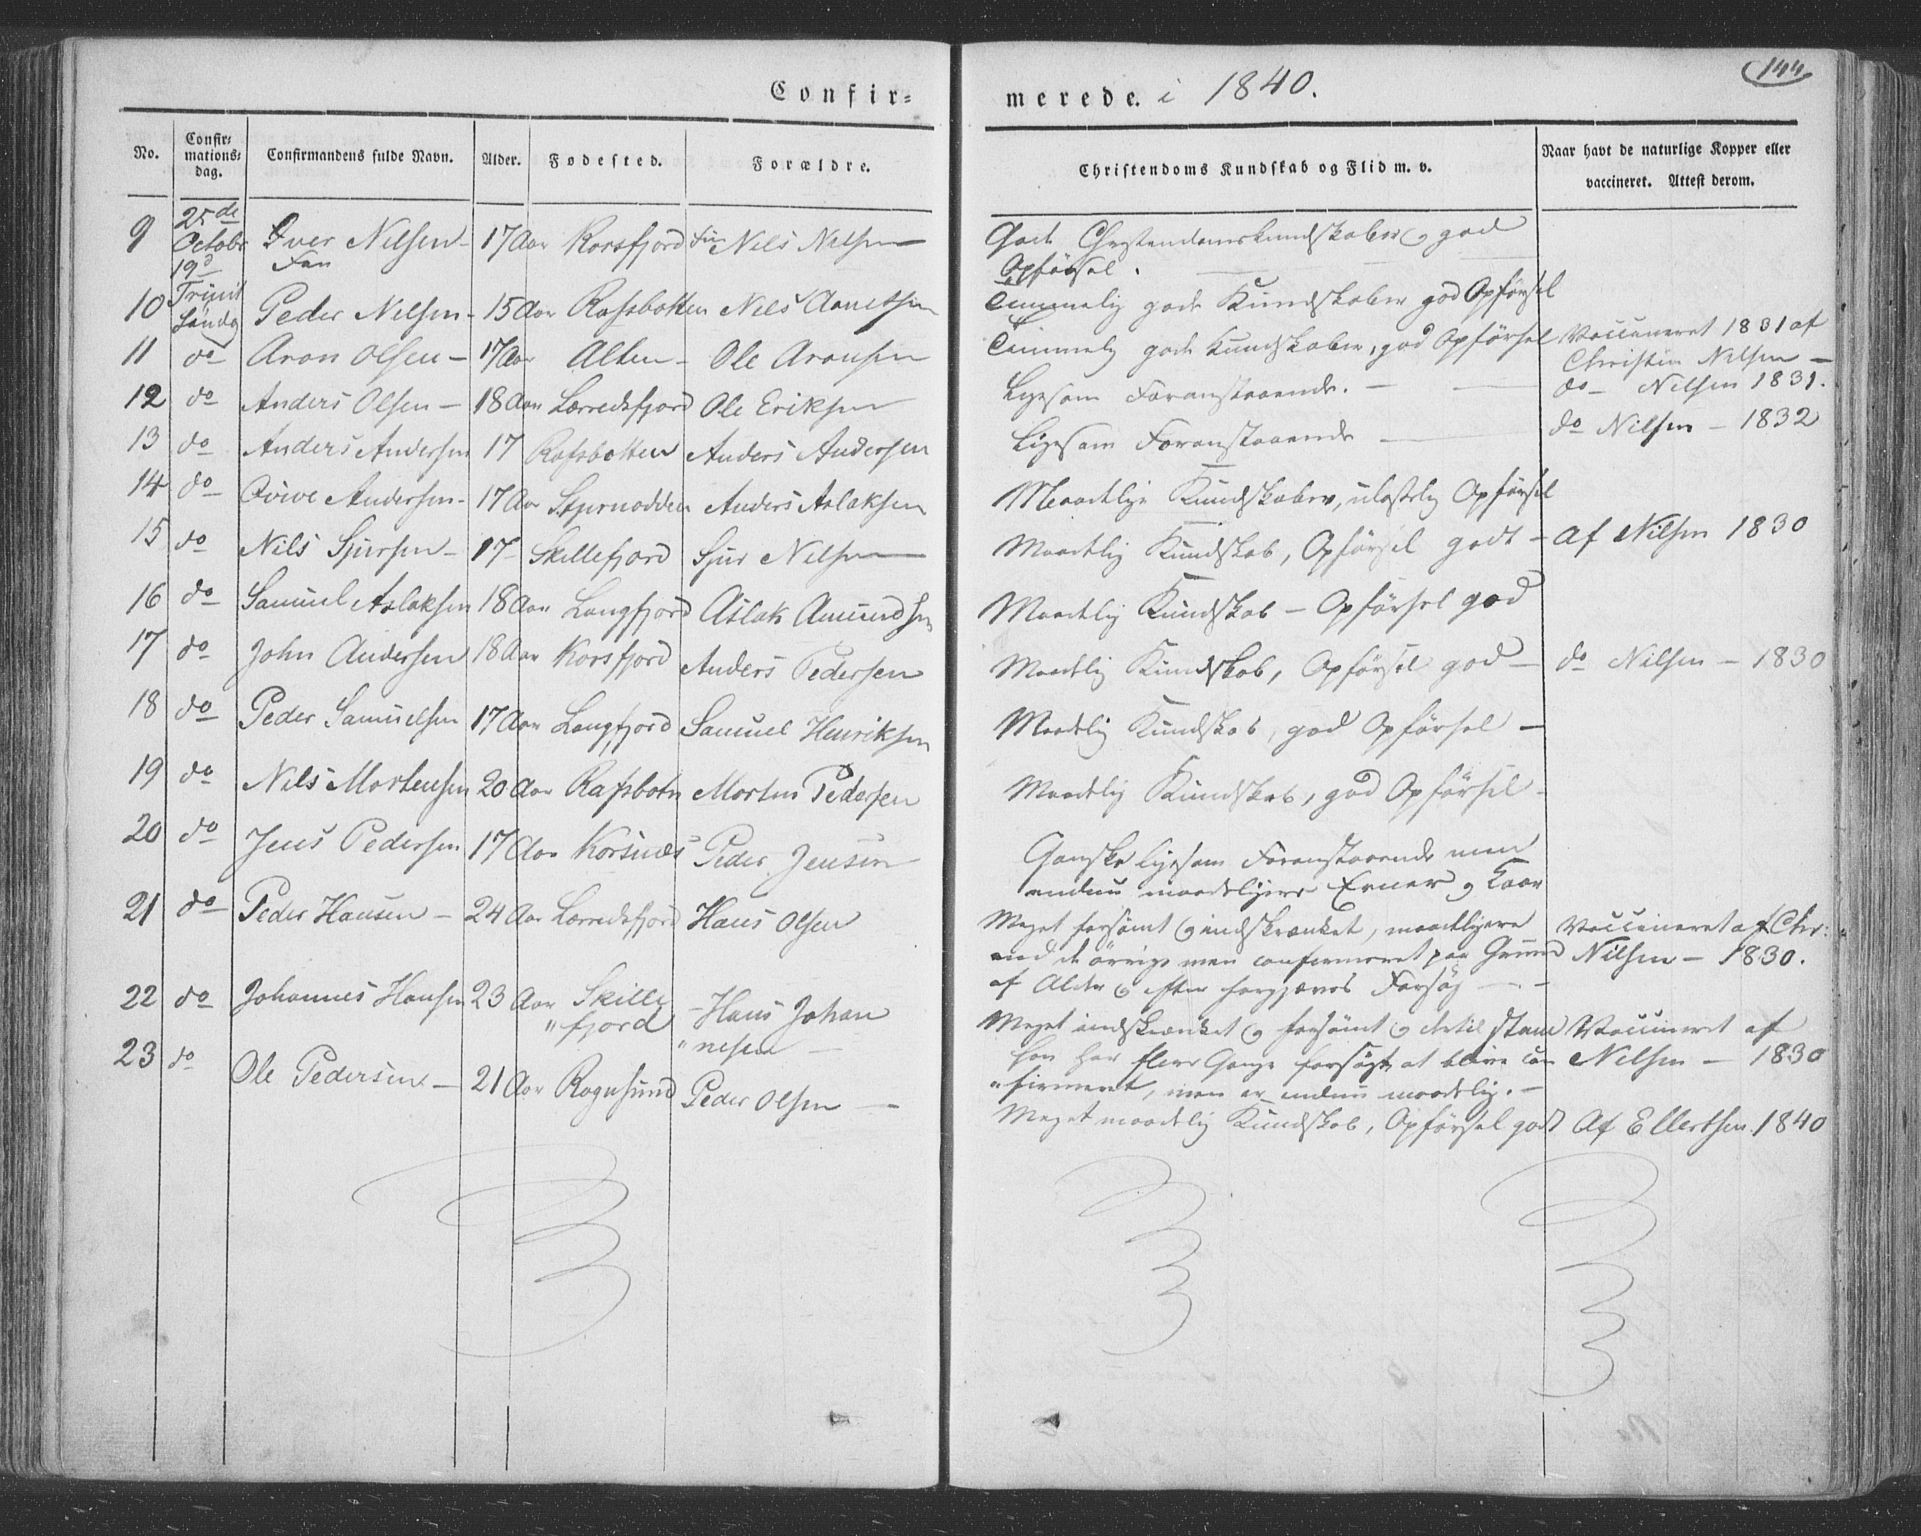 Confir= merede. i 1840.
144
No. Confir= mations= dag. Confirmandens fulde Navn. Alder. Fødested. Forældre. Christendoms Kundskab og Flid m. v. Naar havt de naturlige Kopper eller vaccineret. Attest derom.
9 25de Octobr 19d Iver Nilsen 17 Aar Korsfjord Nils Nilsen God Christendomskundskaber og god
Opførsel.
10 Trinit Søndag Peder Nilsen 15 Aar Rafsbotten Nils Temmelig gode Kundskaber god Opførsel
11 do Aron Olsen 17 Aar Alten Ole Aronsen Temmelig gode Kundskaber, god Opførsel Vaccineret 1831 af
Christen Nilsen
12 do Anders Olsen 18 Aar Lerredsfjord Ole Eriksen Ligesom Foranstaaende. do Nilsen 1831.
13 do Anders Andersen 17 Rafsbotten Anders Andersen Ligesom Foranstaaende do Nilsen 1832
14 do Andersen 17 Aar Stjernodden Anders Aslaksen Maadelige Kundskaber, ulastelig Opførsel
15 do Nils Sjursen 17 Skillefjord Sjur Nilsen Maadelig Kundskab, Opførsel godt af Nilsen 1830
16 do Samuel Aslaksen 18 Aar Langfjord Aslak Amundsen Maadelig Kundskab - Opførsel god
17 do John Andersen 18 Aar Korsfjord Anders Pedersen Maadelig Kundskab, Opførsel god do Nilsen - 1830
18 do Peder Samuelsen 17 Aar Langfjord Samuel Henriksen Maadelig Kundskab, god Opførsel
19 do Nils Mortensen 20 Aar Rafsbotn Morten Pedersen Maadelig Kundskab, god Opførsel
20 do Jens Pedersen 17 Aar Korsnæs Peder Jensen Ganske ligesom Foranstaaende men
endnu maadeligere Evner og Kaar
21 do Peder Hansen 24 Aar Lerredsfjord Hans Olsen Meget forsømt og indskrænket, maadeligere Vaccineret af Chr:
end de øvrige men confirmeret paa Grund Nilsen - 1830.
af Alder og efter forgjæves Forsøg
22 do Johannes Hansen 23 Aar Skille "fjord Hans Johan "nesen Meget indskrænket og forsømt og Vaccineret af
han har flere Gange forsøgt at blive con Nilsen - 1830
"firmeret, men er endnu maadelig.
23 do Ole Pedersen 21 Aar Rognsund Peder Olsen Meget maadelig Kundskab, Opførsel godt Af Ellertsen 1840